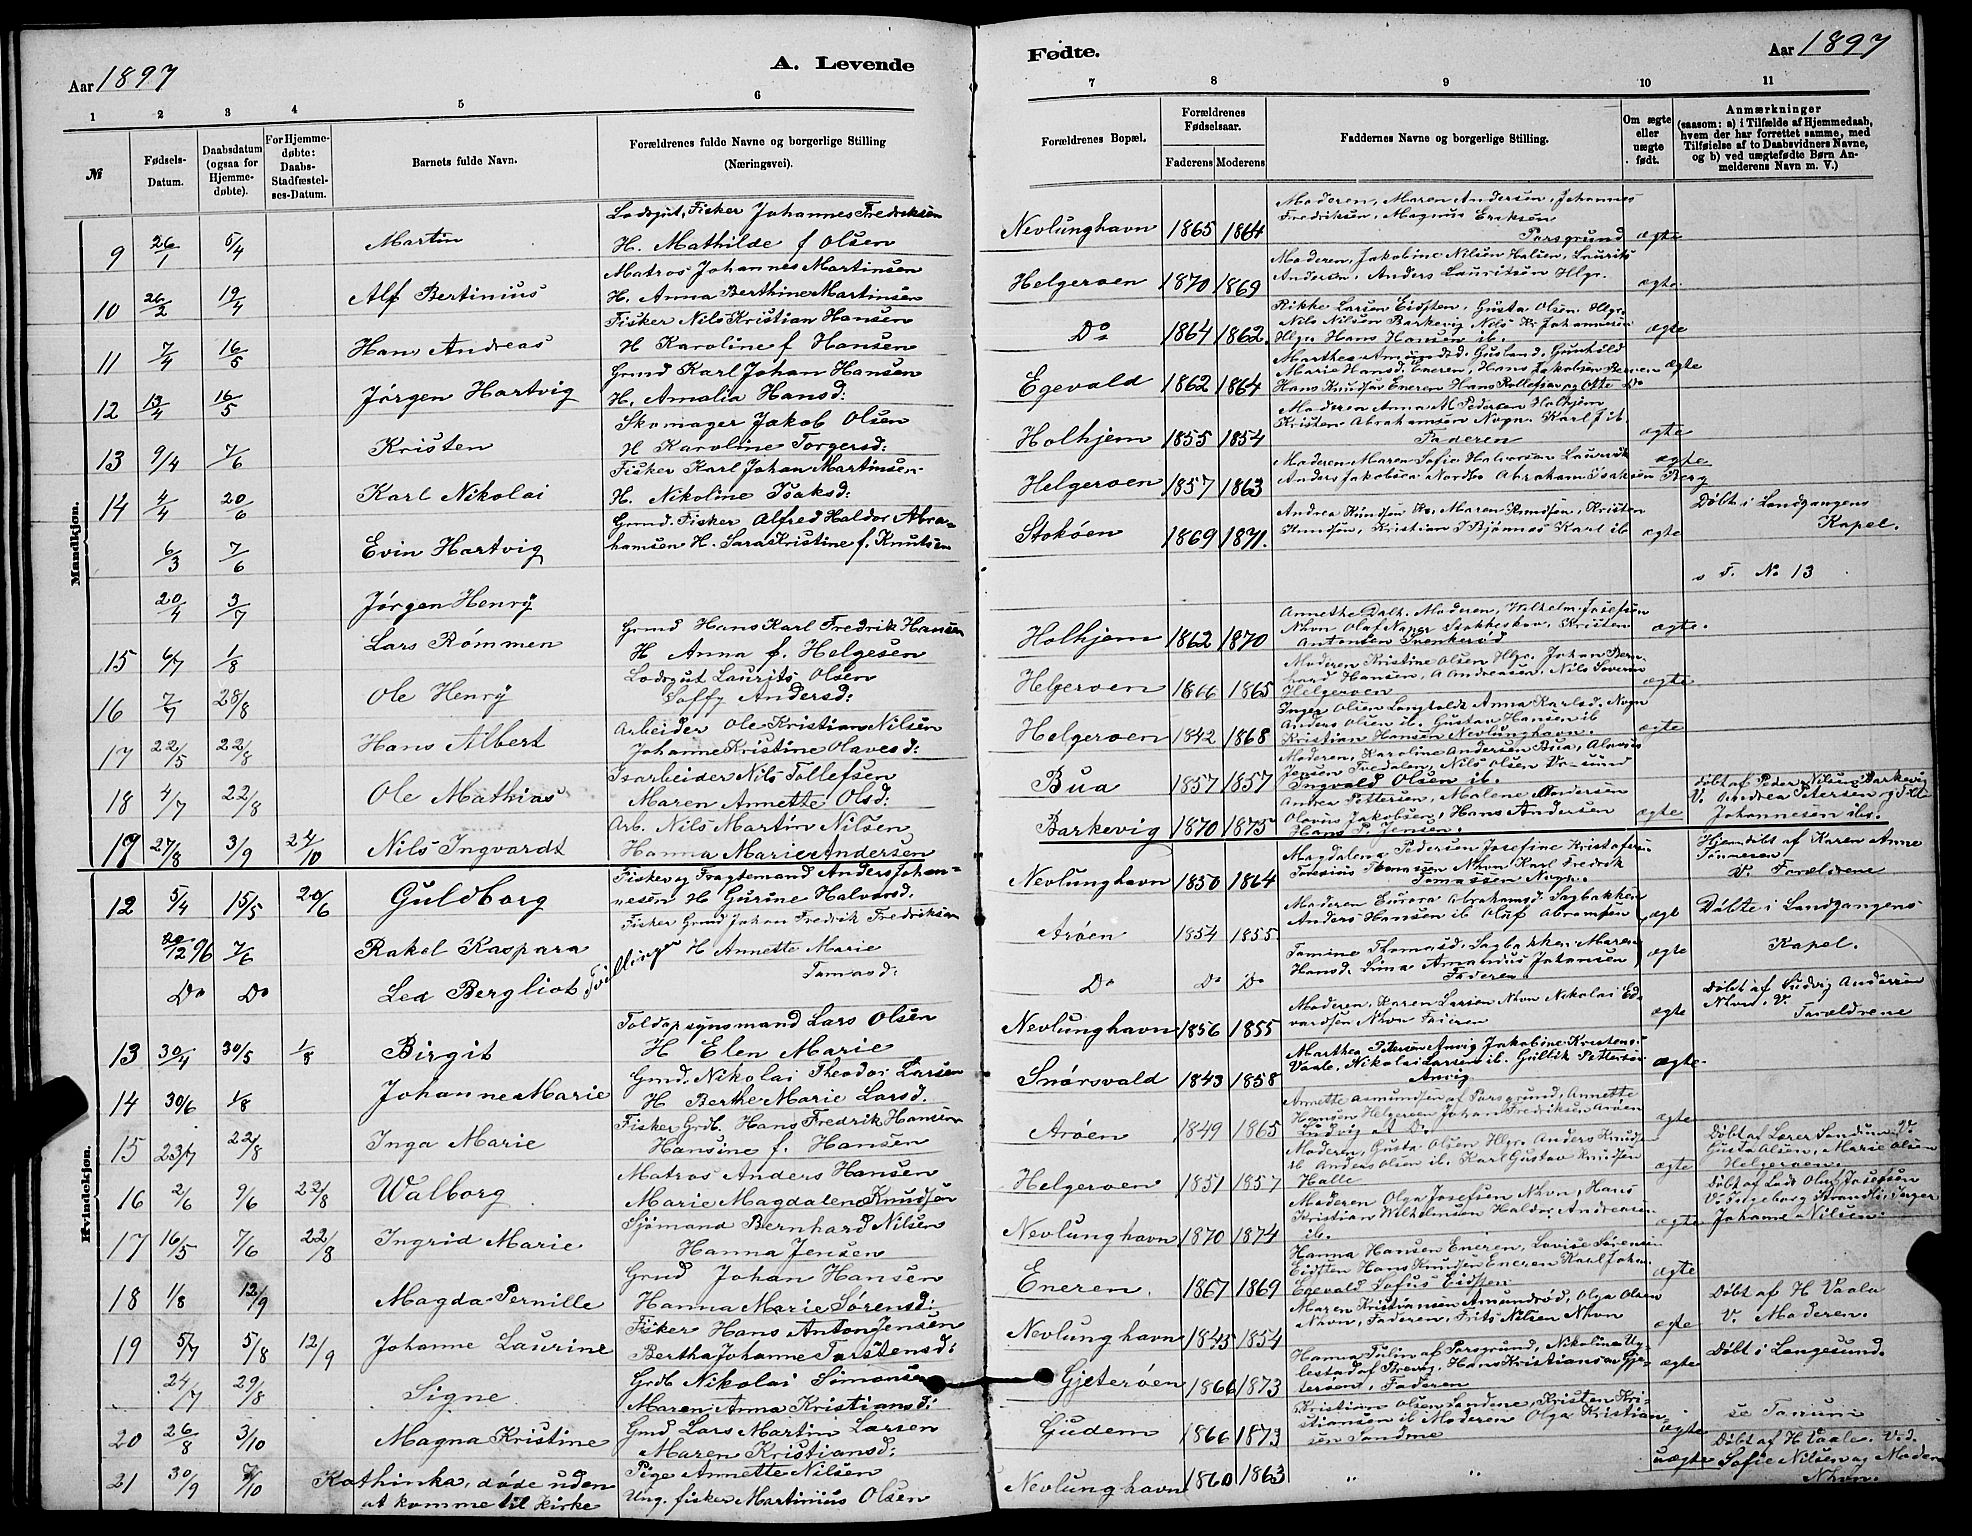 Aar 1897
A. Levende
Fødte.
Aar 1897
1 2 3 4 5 6
7 8 9 10 11
№
Fødsels-Datum.
Daabsdatum (ogsaa for Hjemme-døbte).
For Hjemme-døbte: Daabs-Stadfæstel-ses-Datum.
Barnets fulde Navn.
Forældrenes fulde Navne og borgerlige Stilling (Næringsvei).
Forældrenes Bopæl.
Forældrenes Fødselsaar.
Faderens Moderens
Faddernes Navne og borgerlige Stilling.
Om ægte eller uægte født.
Anmærkninger (saasom: a) i Tilfælde af Hjemmedaab, hvem der har forrettet samme, med Tilføielse af to Daabsvidners Navne, og b) ved uægtefødte Børn An-melderens Navn m. V.)
Mandkjøn.
9 26/1 5/4 Martin
Lodsgut, Fisker Johannes Fredriksen
H. Mathilde f Olsen
Nevlunghavn 1865 1864
Moderen, Maren Andersen, Johannes
Fredriksen, Magnus Eriksen
Porsgrund ægte
10 26/2 19/4 Alf Bertinius
Matros Johannes Martinsen
H. Anna Berthine Martinsen
Helgeroen 1870 1869
Moderen, Jakobine Nilsen Halien, Laurits
Andersen, Anders Lauritsen Hlgr. ægte.
11 7/4 16/5 Hans Andreas
Fisker Nils Kristian Hansen
H Karoline f Hansen
Do 1864 1862.
Rikke Larsen Eidsten, Gusta Olsen Hlgr.
Nils Nilsen Barkevig Nils Kr Johannesen
Hlgr. Hans Hansen ib. ægte
12 13/4 16/5 Jørgen Hartvig
Grmd Karl Johan Hansen
H. Amalia Hansd:
Egevald 1862 1864
Marie Hansd. Eneren, Hans Jakobsen
Hans Knudsen Eneren Hans Rollefsen ægte
13 9/4 7/6 Kristen
Skomager Jakob Olsen
H Karoline Torgersd:
Holhjem 1855 1854
Moderen Anna M Pedersen Holhjem
Kristen Abrahamsen Nvgn. Karl J ib.
Faderen ægte
14 4/4 20/6 Karl Nikolai
Fisker Karl Johan Martinsen
H. Nikoline Isaksd:
Helgeroen 1857 1863
Moderen Maren Sofie Halvorsen Laurids
Anders Jakobsen Nordbo Abraham Isaksen Berg ægte
6/3 7/6 Evin Hartvig
Grmd. Fisker Alfred Haldor Abra-
hamsen H. Sara Kristine f. Knutsen
Stokøen 1869 1871.
Andrea Knudsen Maren Knudsen, Kristen
Knudsen, Kristian J Bjønnes Karl ib ægte
Døbt i Landgangens
Kapel.
20/4 3/7 Jørgen Henry
s. F. No 13
15 6/7 1/8 Lars Rømmen
Grmd Hans Karl Fredrik Hansen
H Anna f. Helgesen
Holhjem 1862 1870
Annethe Dalh. Moderen, Wilhelm Josefsen
Nhvn Olaf Stokkesbøv, Kristen
Antonsen ægte.
16 7/7 28/8 Ole Henry
Lodsgut Laurits Olsen
Soffy Andersd:
Helgeroen 1866 1865
Moderen Kristine Olsen Hlgr. Johan Bern
hard Hansen, A Andreasen, Nils
Helgeroen ægte
17 22/5 22/8 Hans Albert
Arbeider Ole Kristian Nilsen
Johanne Kristine Olavesd:
Helgeroen 1842 1868
Inger Olsen Langholdt Anna Karlsd. Nvgn
Anders Olsen ib. Gustav Hansen ib
Kristian Hansen Nevlunghavn. ægte
18 4/7 22/8 Ole Mathias
Isarbeider Nils Tollefsen
Maren Annette Olsd:
Bua 1857 1857
Moderen, Karoline Andersen Bua,
Jensen Tvedalen, Nils Olsen
Ingvald Olsen ib.
19 27/8 3/9 24/10 Nils Ingvardt
Arb. Nils Martin Nilsen
Hanna Marie Andersen
Barkevig 1870 1875
Andrea Pettersen, Malene Andersen
Olavus Jakobsen, Hans Andersen
Hans P. Jensen. ægte
Døbt af Peder Nilsen Barkevig
V. Andrea Petersen og
Johannesen ibs.
Kvindekjøn.
12 5/4 15/5 20/6 Guldborg
Fisker og Fragtemand Anders Johan-
nesen H Gurine Halvorsd.
Nevlunghavn 1850 1864
Magdalena Pedersen Josefine Kristofersen
Tomassen Nhvn Karl Fredrik
Tomassen Nvgn.
Hjemdøbt af Karen Anne
Tønnesen
V. Forældrene
20/12 96 7/6 Rakel Kaspara
Fisker Grmd Johan Fredrik Fredriksen
H Annette Marie
Tomasd:
Tvillinger
Arøen 1854 1855
Moderen Aurora Abrahamsd. Sagbakken
Anders Hansen ib Olaf Abramsen ægt
Døbte i Landgangens
Kapel.
Do Do Lea Bergliot
Do Do Do
Tomine Thomasd. Sagbakken Maren
Hansd. Lina Amandus Johansen
Faderen ægte
13 30/4 30/5 1/8 Birgit
Toldopsynsmand Lars Olsen
H Elen Marie
Nevlunghavn 1856 1855
Moderen, Karen Larson Nhvn Nikolai Ed-
vardsen Nhvn Faderen ægte
Døbt af Ludvig Andersen
Nhvn. V.
Forældrene
14 30/6 1/8 Johanne Marie
Grmd. Nikolai Theodor Larsen
H Berthe Marie Larsd.
Snørsvald 1843 1858
Marthea Petersen Anvig Jakobine Kristens.
Vaale, Nikolai Larsen ib. Gulbik Pettersen
Anvig ægte
15 23/7 22/8 Inga Marie
Fisker Grdb. Hans Fredrik Hansen
Hansine f. Hansen
Arøen 1849 1865
Annette Asmundsen af Porsgrund, Annette
Hansen Helgeroen Johan Fredriksen Arøen
Ludvig ægte
16 2/6 9/6 22/8 Walborg
Matros Anders Hansen
Marie Magdalene Knudsen
Helgeroen 1851 1857
Moderen, Gusta Olsen Hlgr. Anders Knuds
ib Anders Olsen ib. Karl Gustav Knudsen
Halle ægte
Døbt af Lærer Sandum V.
Gusta Olsen, Marie Olsen
Helgeroen
17 16/5 7/6 22/8 Ingrid Marie
Sjømand Bernhard Nilsen
Hanna Jensen
Nevlunghavn 1870 1874
Moderen Olga Josefsen Nhvn, Hans
Kristian Wilhelmsen Haldor Andreasen
ib. ægte
Døbt af Lods Olaf Josefsen
V. Ingeborg Strandli, Inger
Johanne Nilsen
18 1/8 12/9 Magda Pernille
Grmd Johan Hansen
Hanna Marie Sørensd:
Eneren. 1867 1869
Hanna Hansen Eneren, Lovise Sørensen
Eidsten Hans Knudsen Eneren Karl Johan
Egevald Sofus Eidsten ægte
19 5/7 5/8 12/9 Johanne Laurine
Fisker Hans Anton Jensen
Bertha Johanne Torstensd:
Nevlunghavn 1845 1854
Maren Kristiansen Amundrød, Olga Olsen
Nhvn, Faderen, Frits Nilsen Nhvn ægte
Døbt af H Vaala
V. Moderen.
24/7 29/8 Signe
Grdb Nikolai Simonsen
Maren Anna Kristiansd:
Gjeterøen 1866 1873
Hanna Tulin af Porsgrund, Nikoline
af Brevig, Hans Kristiansen Gje-
terøen, Faderen ægte
Døbt i Langesund.
20 26/8 3/10 Magna Kristine
Grmd Lars Martin Larsen
Maren Kristiansd:
Gudem 1866 1873
Kristian Olsen Sandene, Kristen Kri-
stiansen ib Moderen Olga Kristian-
sen ægte
se Tanum
21 30/9 7/10 Kathinka, døde uden
at komme til Kirke
Pige Annette Nilsen
Ung. fisker Martinius Olsen
Nevlunghavn 1860 1863
" "
uægte
Døbt af H Vaale. Vid.
Sofie Nilsen og Moder
Nhvn.